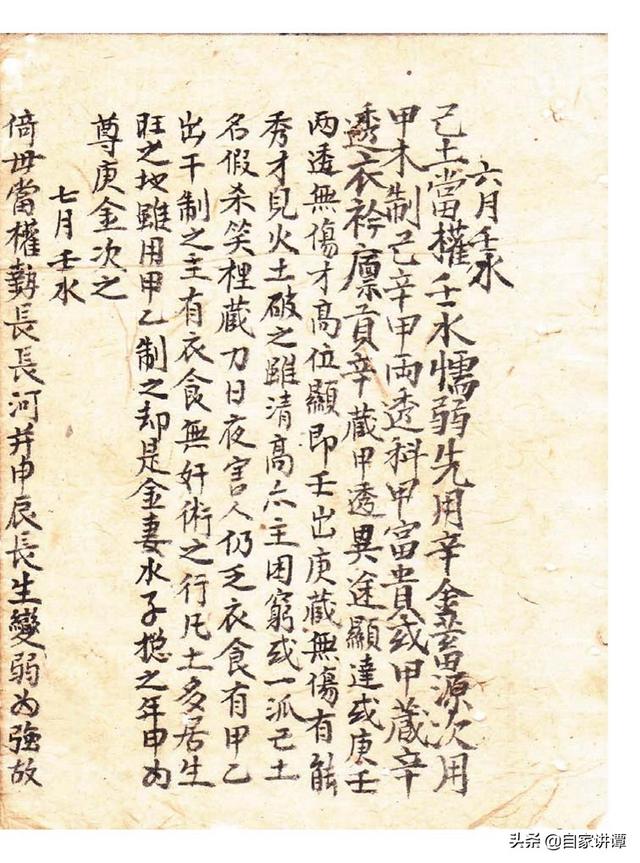 六月壬水
己土當權壬水懦弱先用辛金蓄源次用
甲木制己辛甲両透科甲富貴或甲藏辛
透衣衿廩貢辛藏甲透異途顯達或庚壬
两透無傷才高位顯即壬出庚藏無傷有能
秀才見火土破之雖清高亦主困窮或一派己土
名假杀笑裡藏刀日夜害人仍乏衣食有甲乙
出干制之主有衣食無奸術之行凡土多居生
旺之地雖用甲乙制之却是金妻水子揔之年申为
尊庚金次之
七月壬水
倚毌當權勢長長河并申辰長生變弱为強故
头条 @自家讲谭